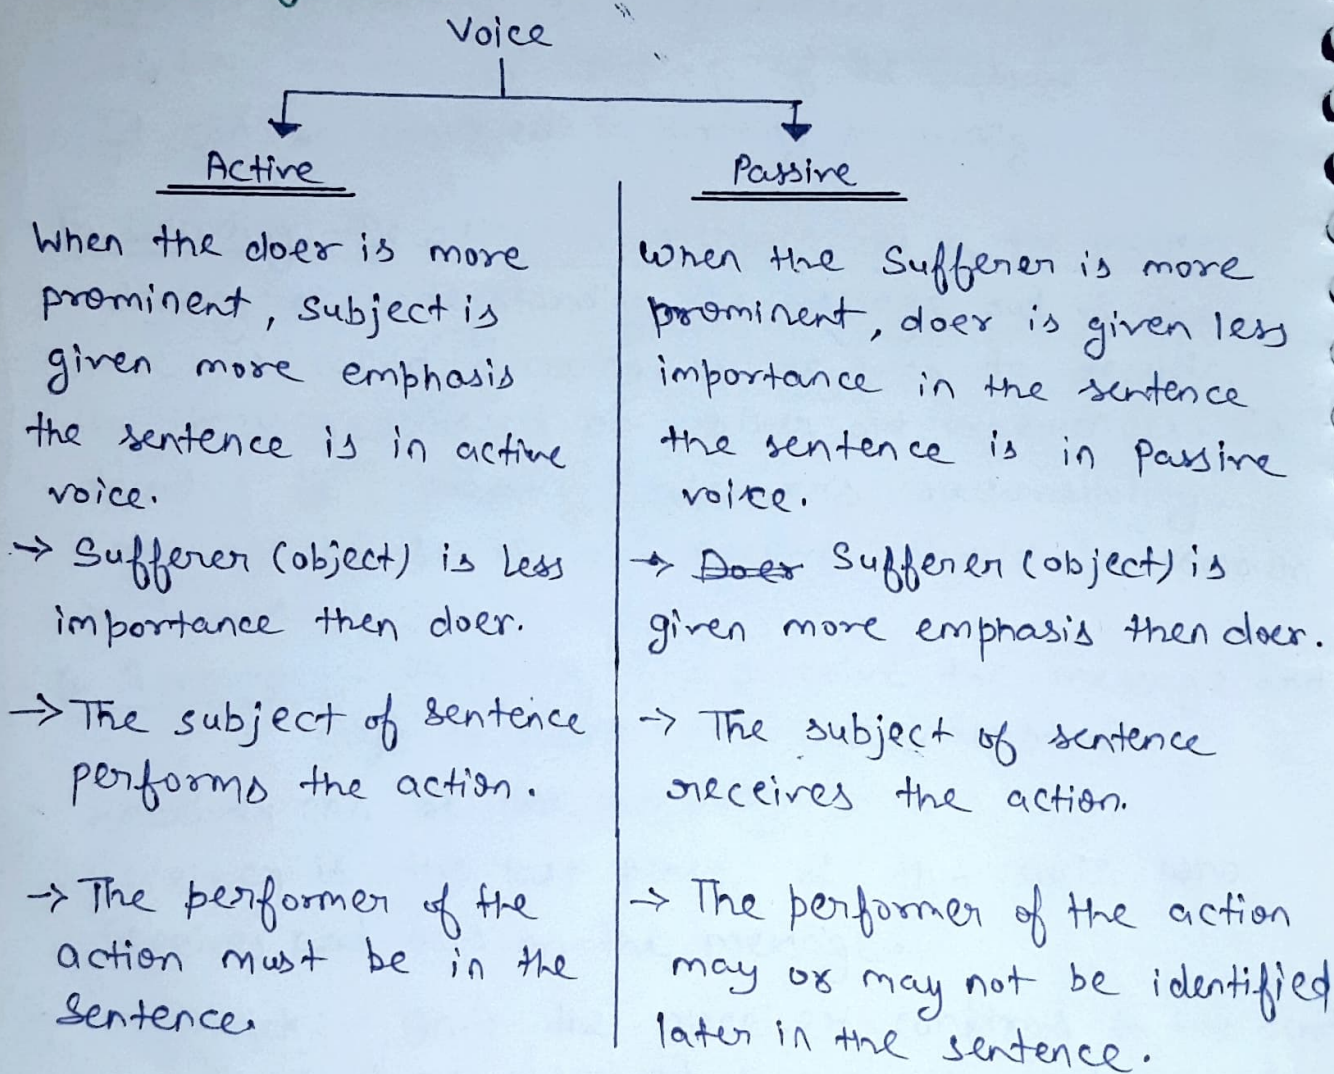 Voice
Active
When the doer is more
prominent, subject is
given more emphasis
the sentence is in active
voice.
→ Sufferer (object) is less
importance then doer.
→ The subject of sentence
performs the action.
→ The performer of the
action must be in the
sentence.
Passive
When the Sufferer is more
prominent, doer is given less
importance in the sentence
the sentence is in Passive
voice.
→ Doer Sufferer (object) is
given more emphasis then doer.
→ The subject of sentence
receives the action.
→ The performer of the action
may or may not be identified
later in the sentence.